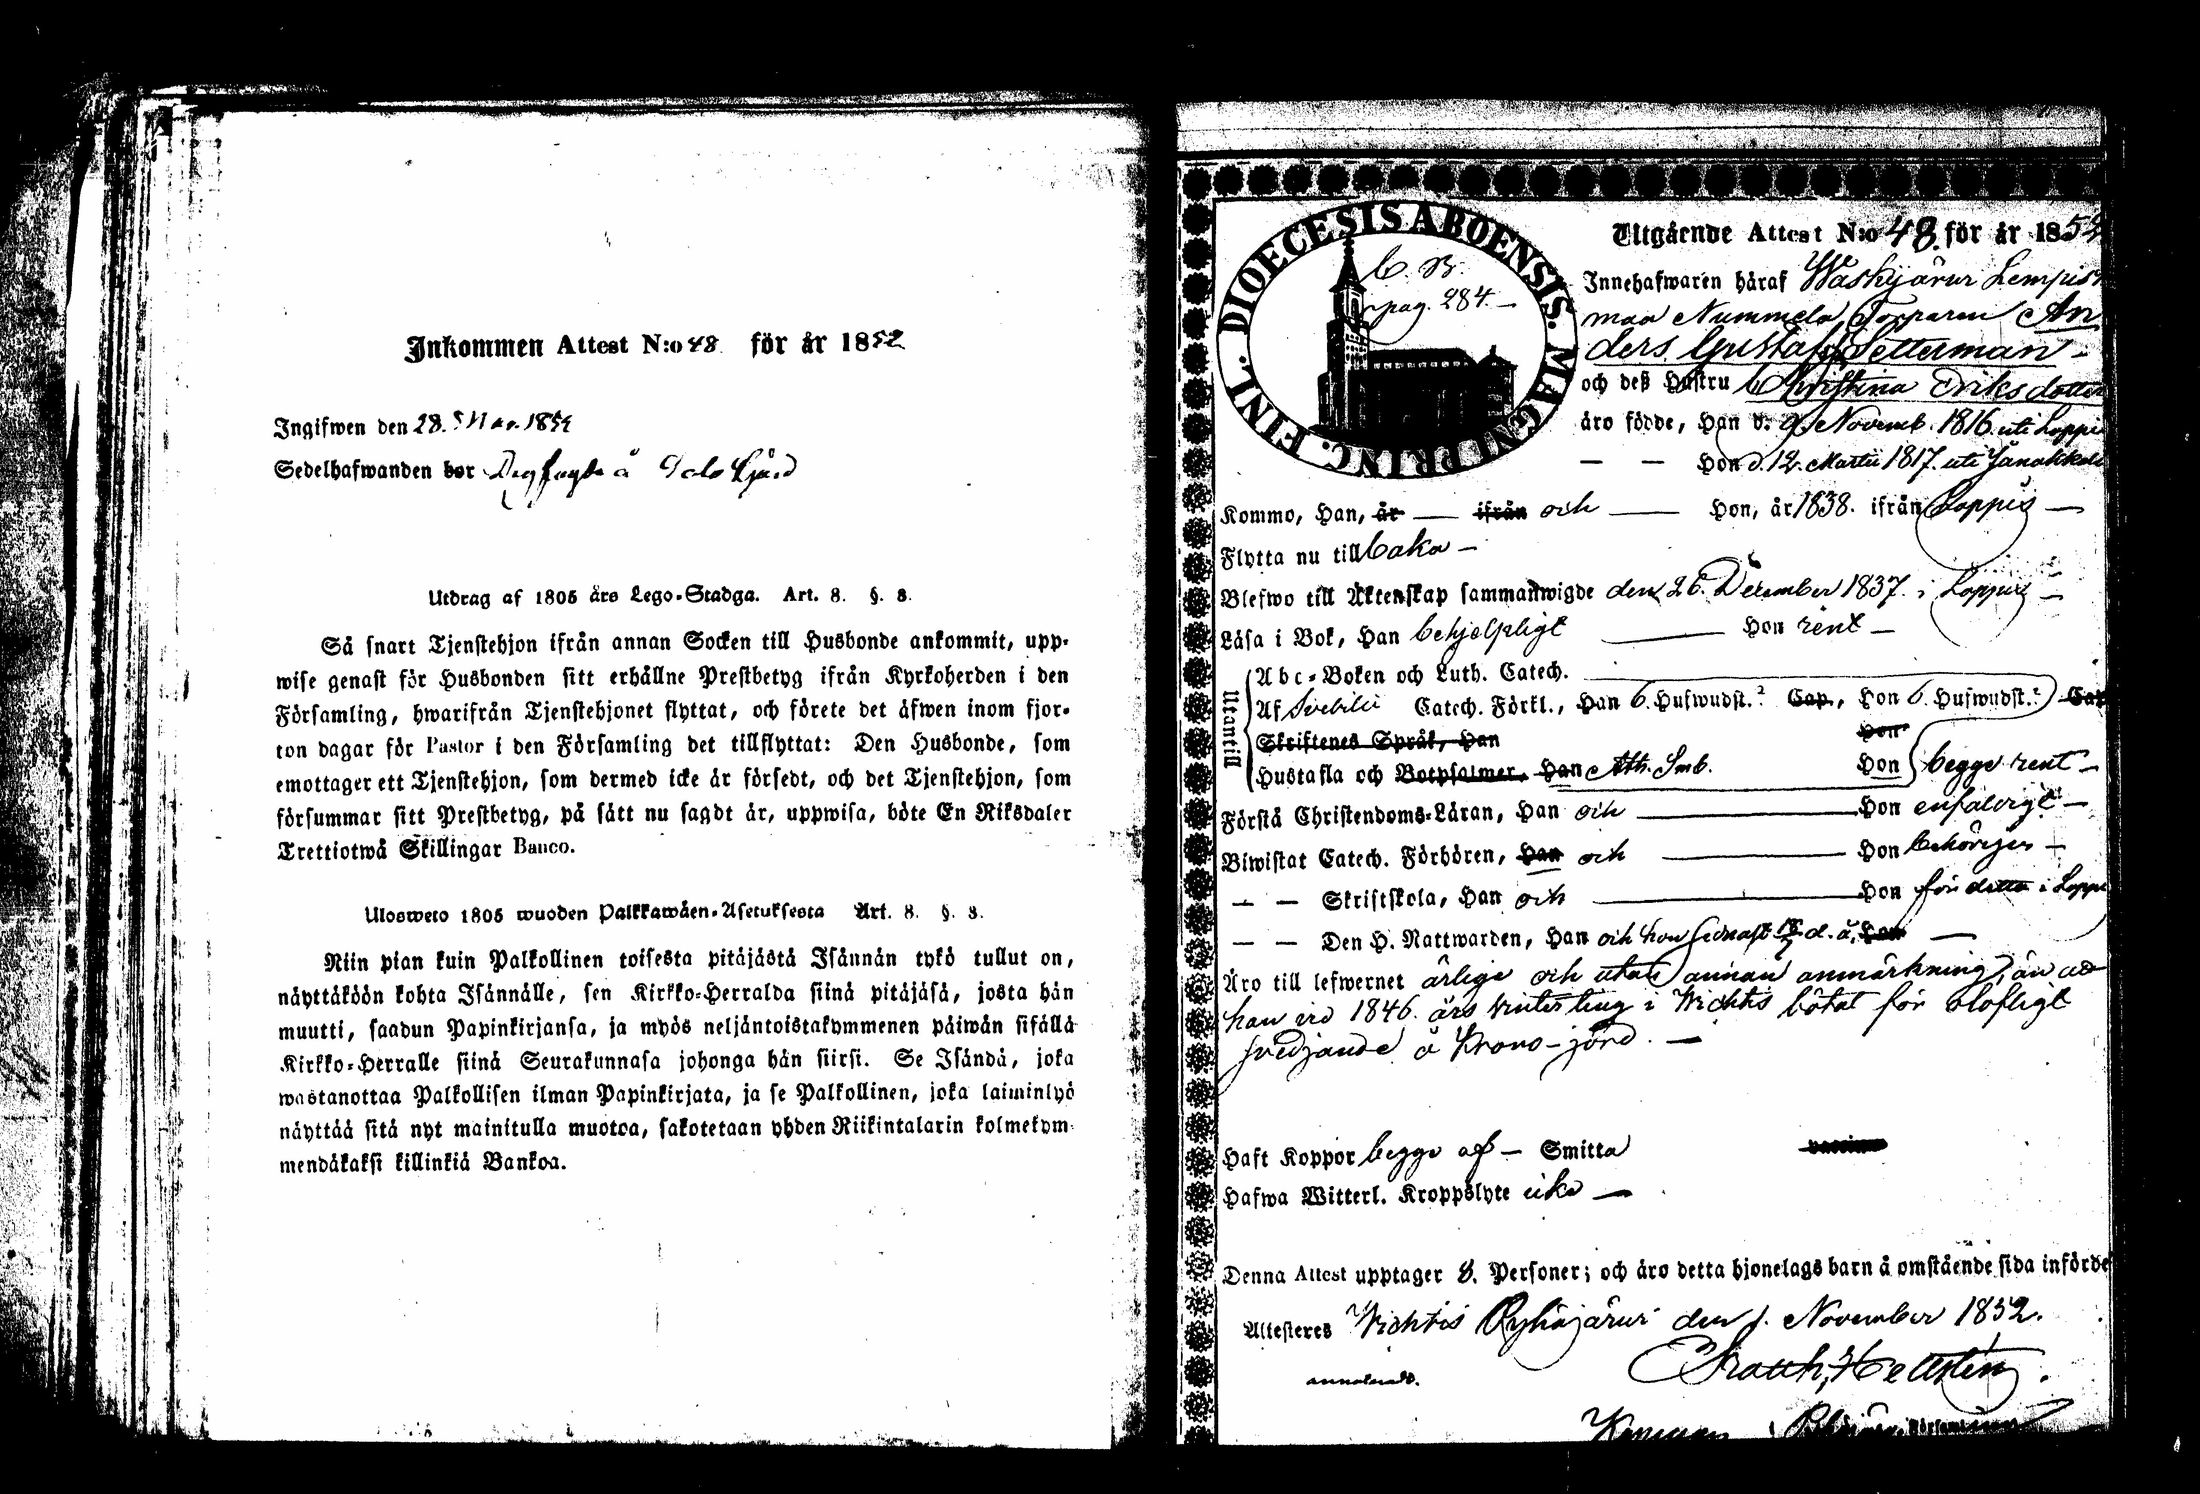 Inkommen Attest N:o 48 för år 1852
Ingifwen den 28. Nov. 1852
Sedelhafwanden bor
Utdrag af 1805 års Lego-Stadga. Art. 8. §. 8.
Så snart Tjenstehjon ifrån annan Socken till Husbonde ankommit, upp-
wise genast för Husbonden sitt erhållne Prestbetyg ifrån Kyrkoherden i den
Församling, hwarifrån Tjenstehjonet flyttat, och förete det äfwen inom fjor-
ton dagar för Pastor i den Församling det tillflyttat: Den Husbonde, som
emottager ett Tjenstehjon, som dermed icke är försedt, och det Tjenstehjon, som
försummar sitt Prestbetyg, på sätt nu sagdt är, uppwisa, böte En Riksdaler
Trettiotwå Skillingar Banco.
Ulosweto 1805 wuoden Palkkawäen-Asetuksesta Art. 8. §. 8.
Niin pian kuin Palkollinen toisesta pitäjästä Isännän tykö tullut on,
näyttäköön kohta Isännälle, sen Kirkko-Herralda siinä pitäjäsä, josta hän
muutti, saadun Papinkirjansa, ja myös neljäntoistakymmenen päiwän sisällä
Kirkko-Herralle siinä Seurakunnasa johonga hän siirsi. Se Isändä, joka
wastanottaa Palkollisen ilman Papinkirjata, ja se Palkollinen, joka laiminlyö
näyttää sitä nyt mainitulla muotoa, sakotetaan yhden Riikintalarin kolmekym-
mendäkaksi killinkiä Bankoa.
DIOECESIS ABOENSIS. MAGNI PRINC. FINL.
C. B.
pag. 284.
Utgående Attest N:o 48. för år 1852
Innehafwaren häraf Waskijärwi Lempis
maa Nummela Torparen An
ders Gustaf Setterman
och deß Hustru Christina Eriksdotter
äro födde, Han d. 9 Novemb. 1816 uti Loppis
— — Hon d. 12. Martii 1817. uti Janakkala
Kommo, Han, år — ifrån och — Hon, år 1838. ifrån Loppis —
Flytta nu till baka —
Blefwo till Äktenskap sammanwigde den 26. December 1837. i Loppis —
Läsa i Bok, Han behjelpligt — Hon rent —
Utantill
Abc-Boken och Luth. Catech.
Af Svebilii Catech. Förkl., Han 6. Hufwudst. Cap., Hon 6. Hufwudst. Cap
Skriftenes Språk, Han Hon
Hustafla och Botpsalmer, Han Ath. Smb. Hon begge rent —
Förstå Christendoms-Läran, Han och — Hon enfaldigt —
Biwistat Catech. Förhören, Han och — Hon behörigen —
— — Skriftskola, Han och — Hon för detta i Loppis
— — Den H. Nattwarden, Han och hon sednast d. å. Hon —
Äro till lefwernet ärlige och utan annan anmärkning, än att
han vid 1846. års winterting i Wichtis bötat för olofligt
svedjande å Krono-jord. —
Haft Koppor begge af — Smitta vaccin
Hafwa Witterl. Kroppslyte icke —
Denna Attest upptager 8. Personer; och äro detta hjonelags barn å omstående sida införde
Attesteres Wichtis Pyhäjärvi den 1. November 1852.
annoteradt.